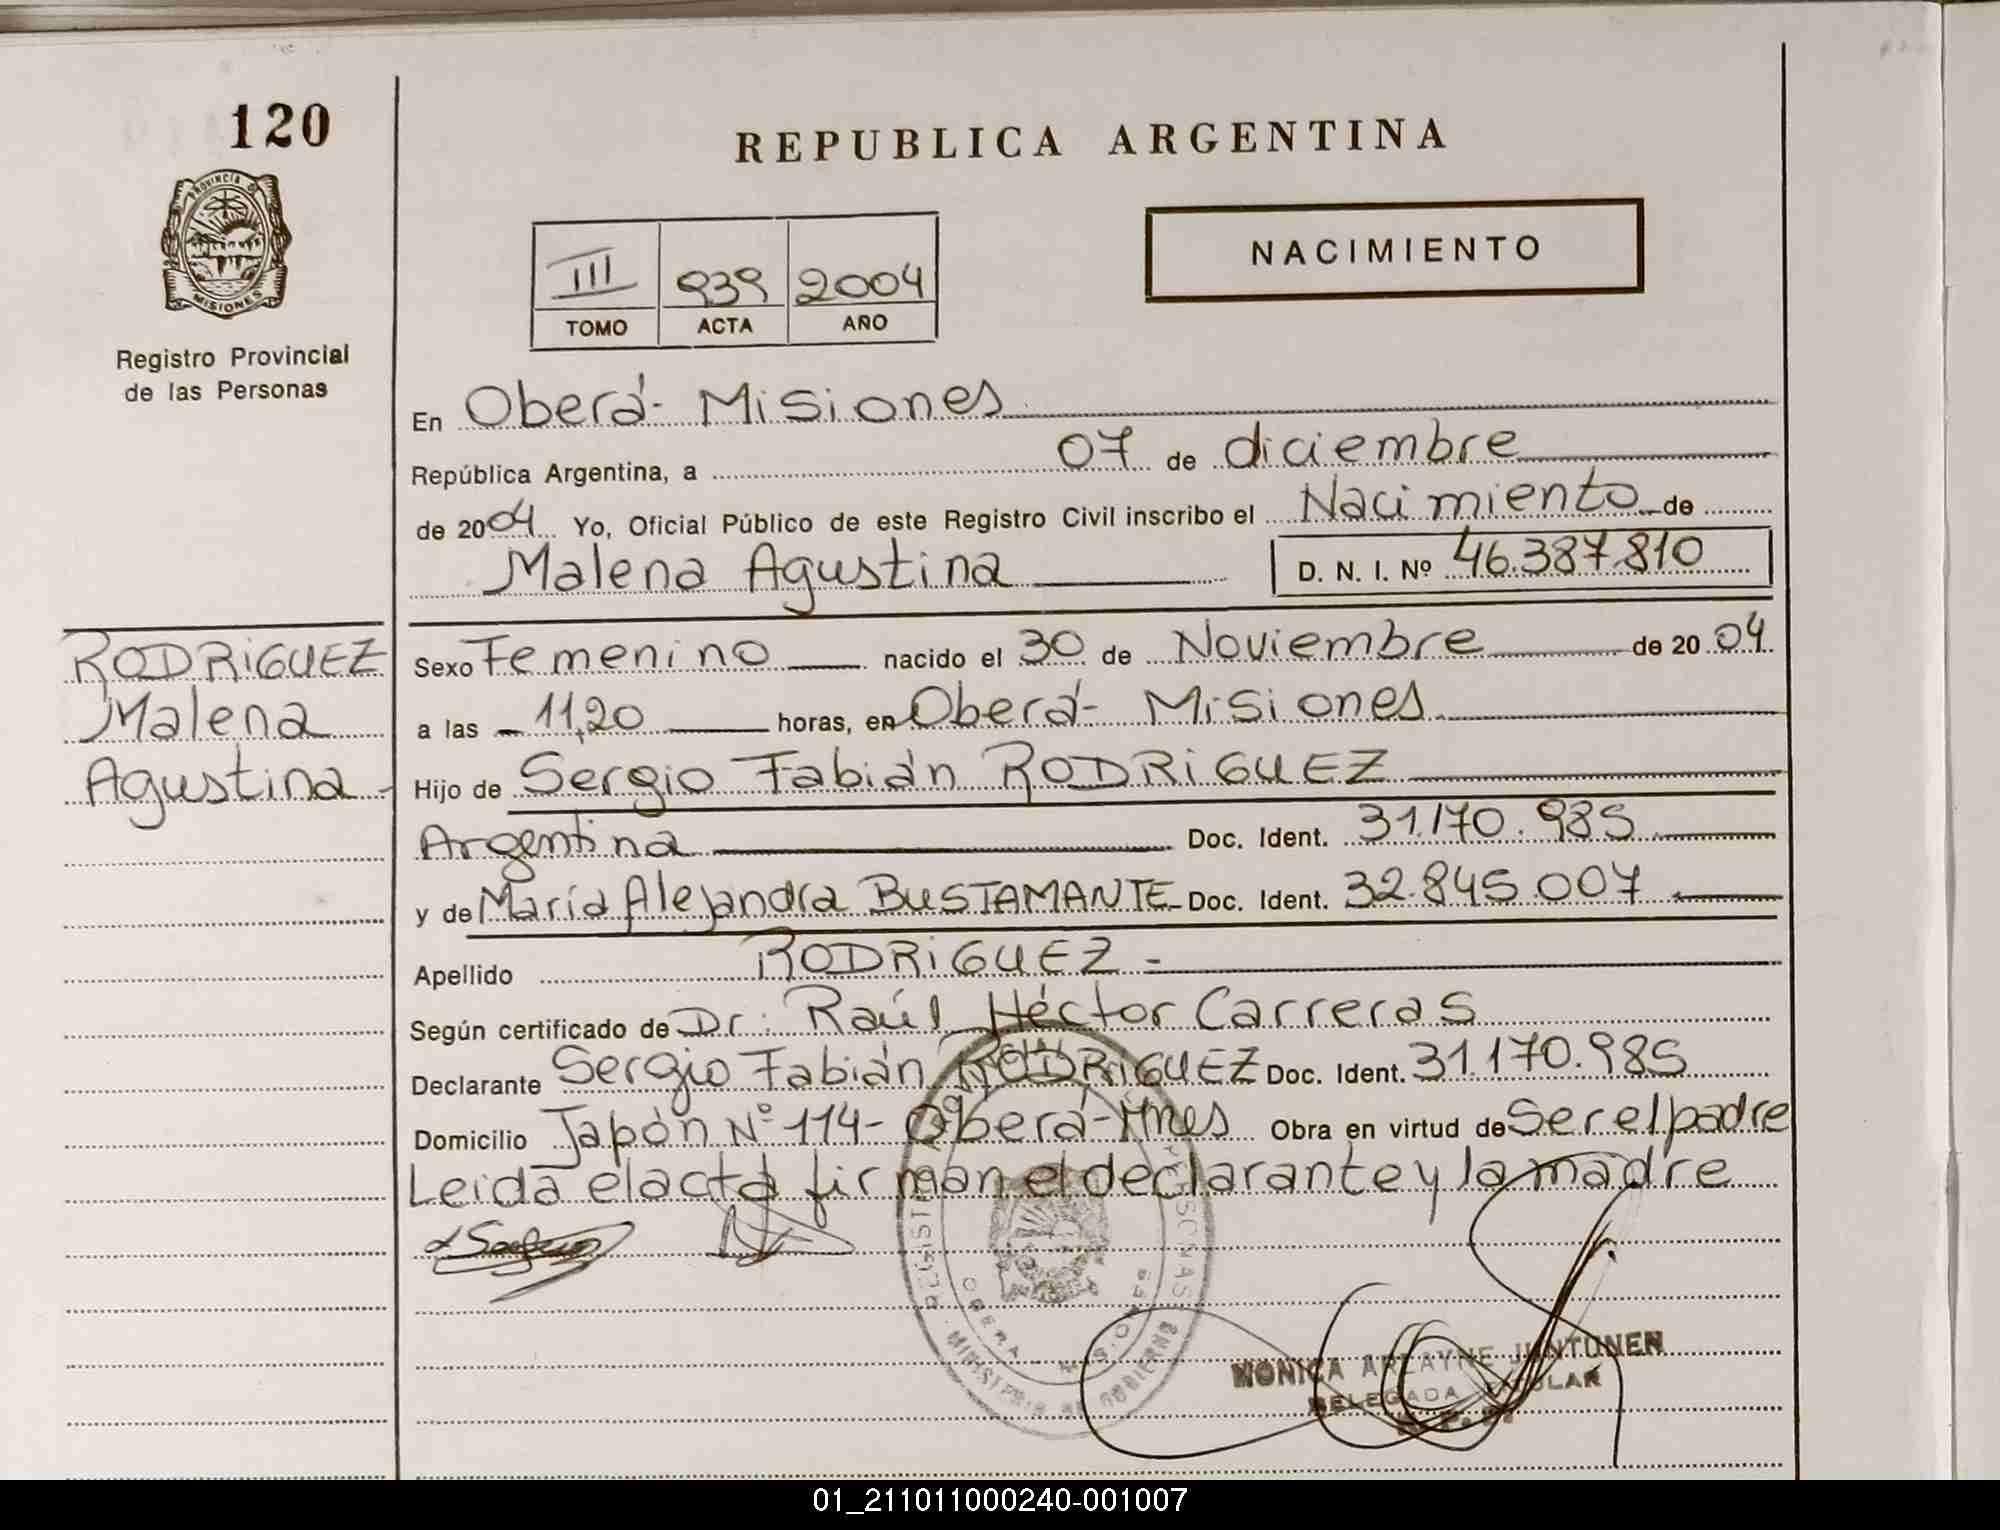 120
PROVINCIA DE
MISIONES
Registro Provincial
de las Personas
REPUBLICA ARGENTINA
III 939 2004
TOMO ACTA AÑO
NACIMIENTO
En Oberá - Misiones
República Argentina, a 07 de diciembre
de 2004 Yo, Oficial Público de este Registro Civil inscribo el Nacimiento de
Malena Agustina D. N. I. Nº 46.387.810
RODRIGUEZ
Malena
Agustina -
Sexo Femenino nacido el 30 de Noviembre de 2004
a las - 11,20 horas, en Oberá - Misiones
Hijo de Sergio Fabián RODRIGUEZ
Argentina Doc. Ident. 31.170.985
y de María Alejandra BUSTAMANTE Doc. Ident. 32.845.007
Apellido RODRIGUEZ -
Según certificado de Dr. Raúl Héctor Carreras
Declarante Sergio Fabián RODRIGUEZ Doc. Ident. 31.170.985
Domicilio Japón Nº 114 - Oberá - Mnes Obra en virtud de Ser el padre
Leída el acta firman el declarante y la madre
MINISTERIO DE GOBIERNO
OBERA MISIONES
MONICA ARLAYNE JUNTUNEN
DELEGADA TITULAR
01_211011000240-001007